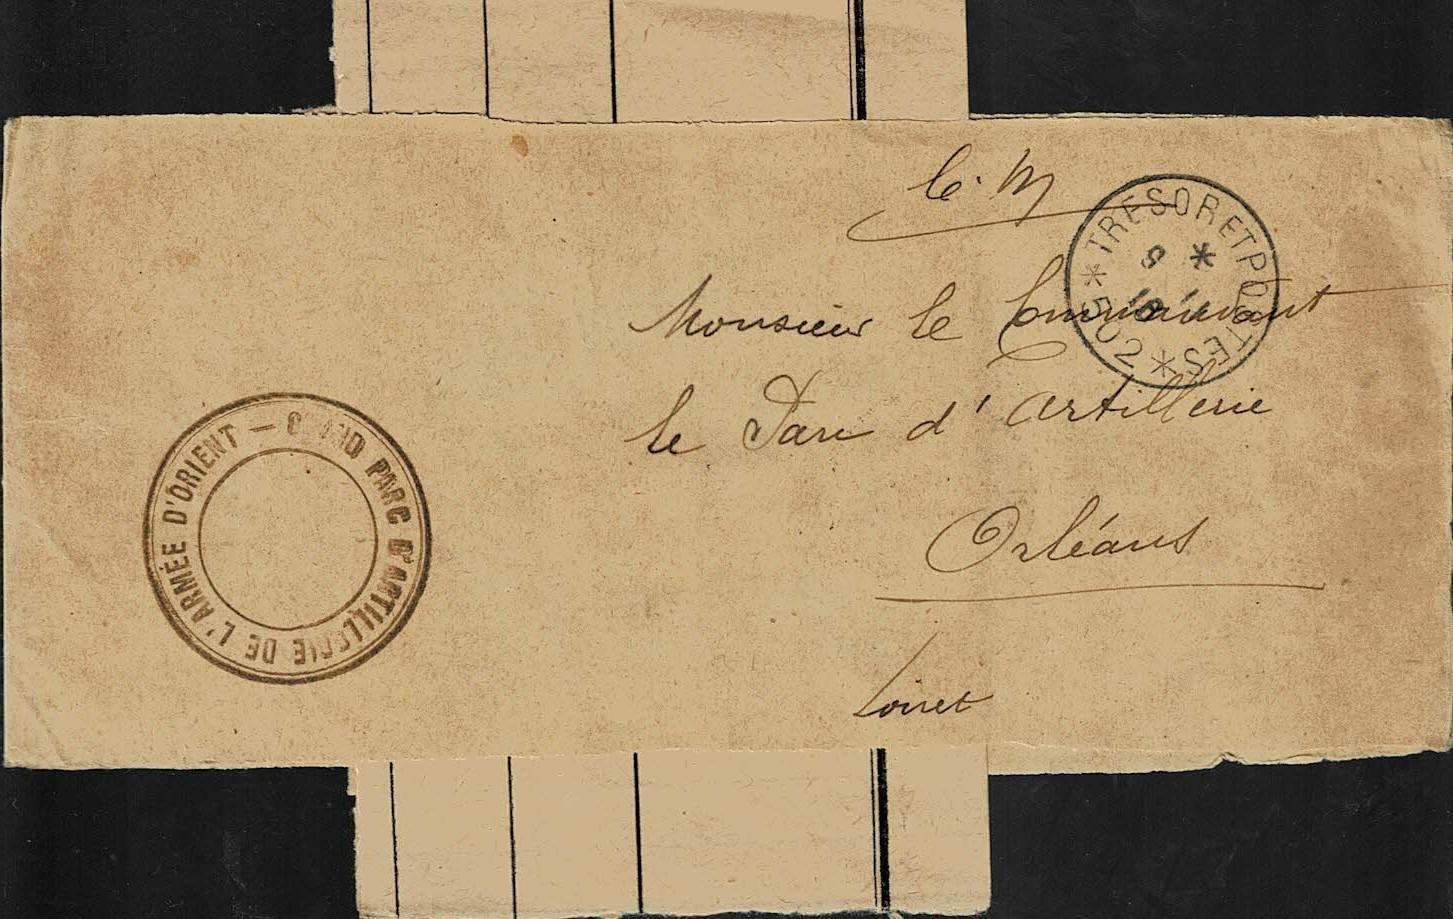 C. M
TRESOR ET POSTES * 502 *
Monsieur le Commandant
le Parc d'Artillerie
Orléans
Loiret
GRAND PARC D'ARTILLERIE DE L'ARMÉE D'ORIENT —